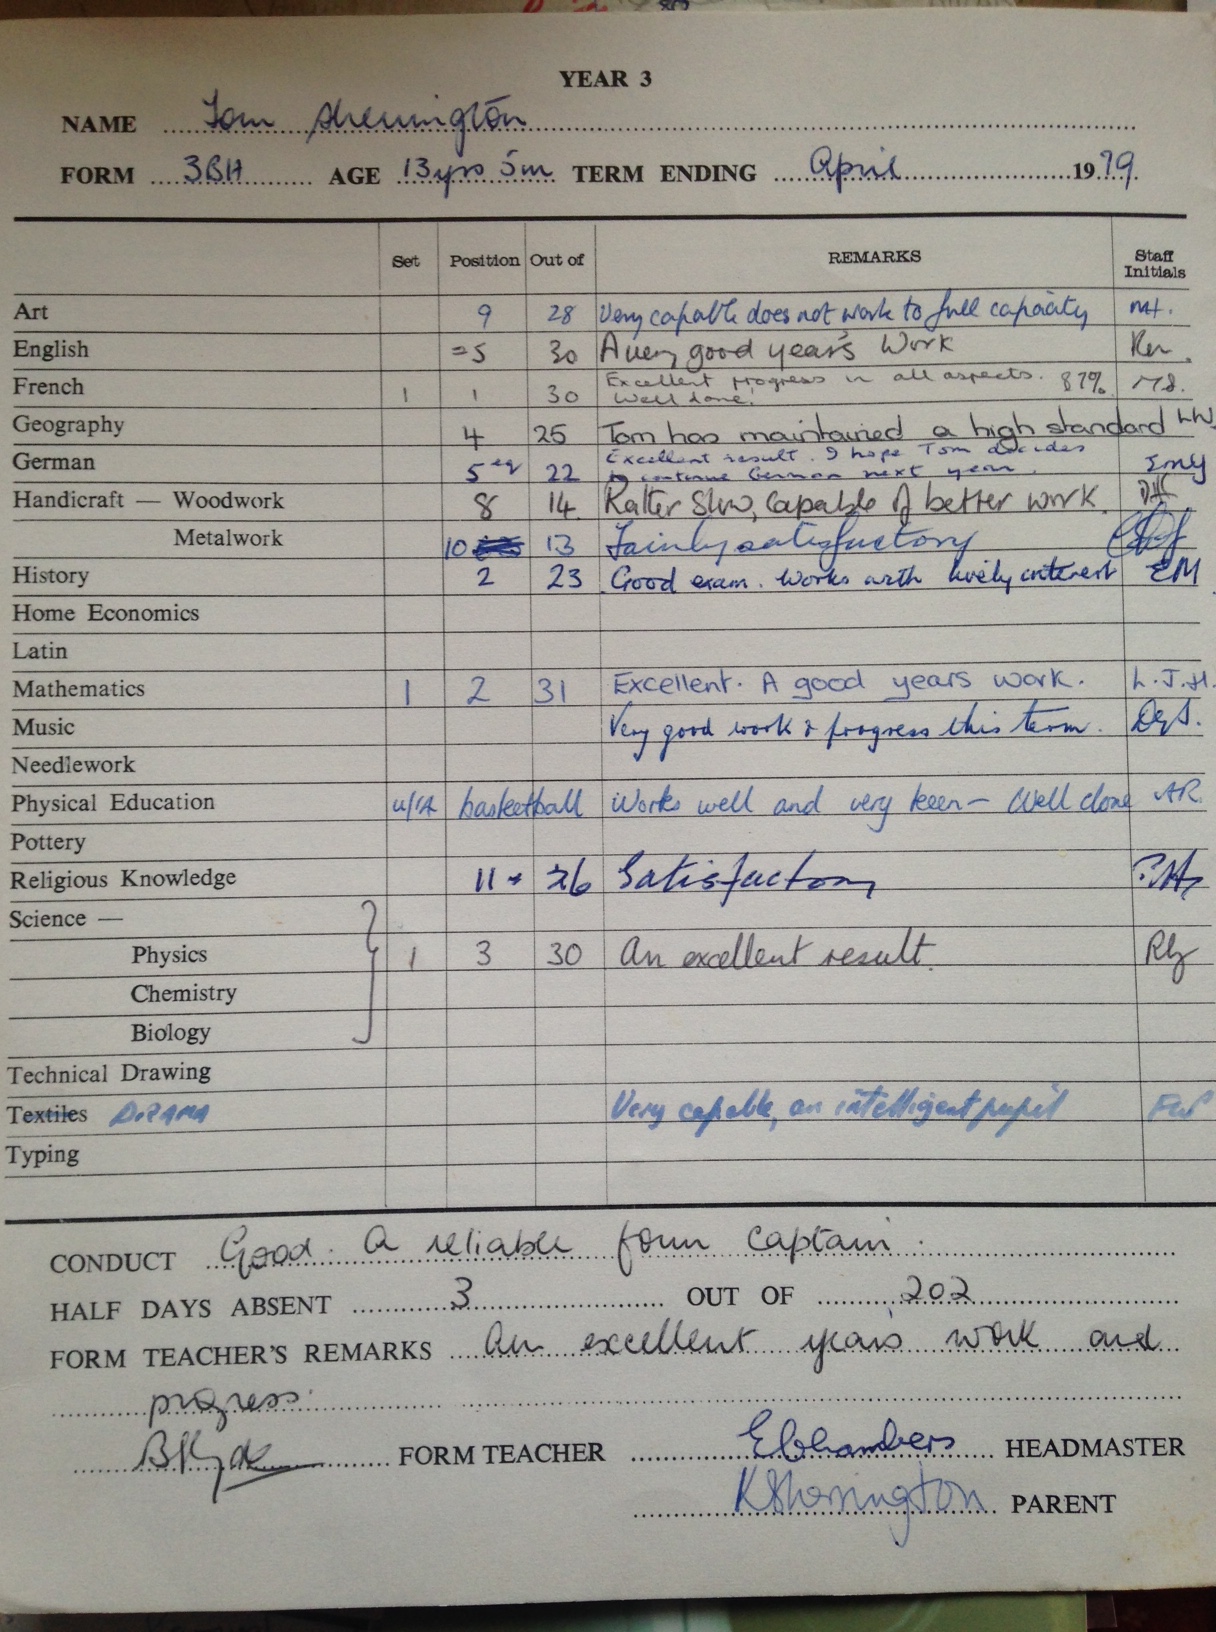 YEAR 3
NAME Tom Sherrington
FORM 3BH AGE 13yrs 5m TERM ENDING April 1979
Set Position Out of REMARKS Staff Initials
Art 9 28 Very capable does not work to full capacity
English =5 30 A very good year's work
French 1 1 30 Excellent progress in all aspects. 87%
Well done!
Geography 4 25 Tom has maintained a high standard
German 5 eq 22 Excellent result. I hope Tom decides
to continue German next year.
Handicraft — Woodwork 8 14 Rather Slow, Capable of better work.
Metalwork 10 13 Fairly satisfactory
History 2 23 Good exam. Works with lively interest EM
Home Economics
Latin
Mathematics 1 2 31 Excellent. A good years work. L.J.H.
Music Very good work & progress this term.
Needlework
Physical Education u/14 basketball Works well and very keen – Well done AR.
Pottery
Religious Knowledge 11 = 26 Satisfactory
Science —
Physics 1 3 30 An excellent result.
Chemistry
Biology
Technical Drawing
Textiles DRAMA Very capable, an intelligent pupil
Typing
CONDUCT Good. A reliable form captain.
HALF DAYS ABSENT 3 OUT OF 202
FORM TEACHER'S REMARKS An excellent year's work and
progress.
FORM TEACHER E Chambers HEADMASTER
K Sherrington PARENT